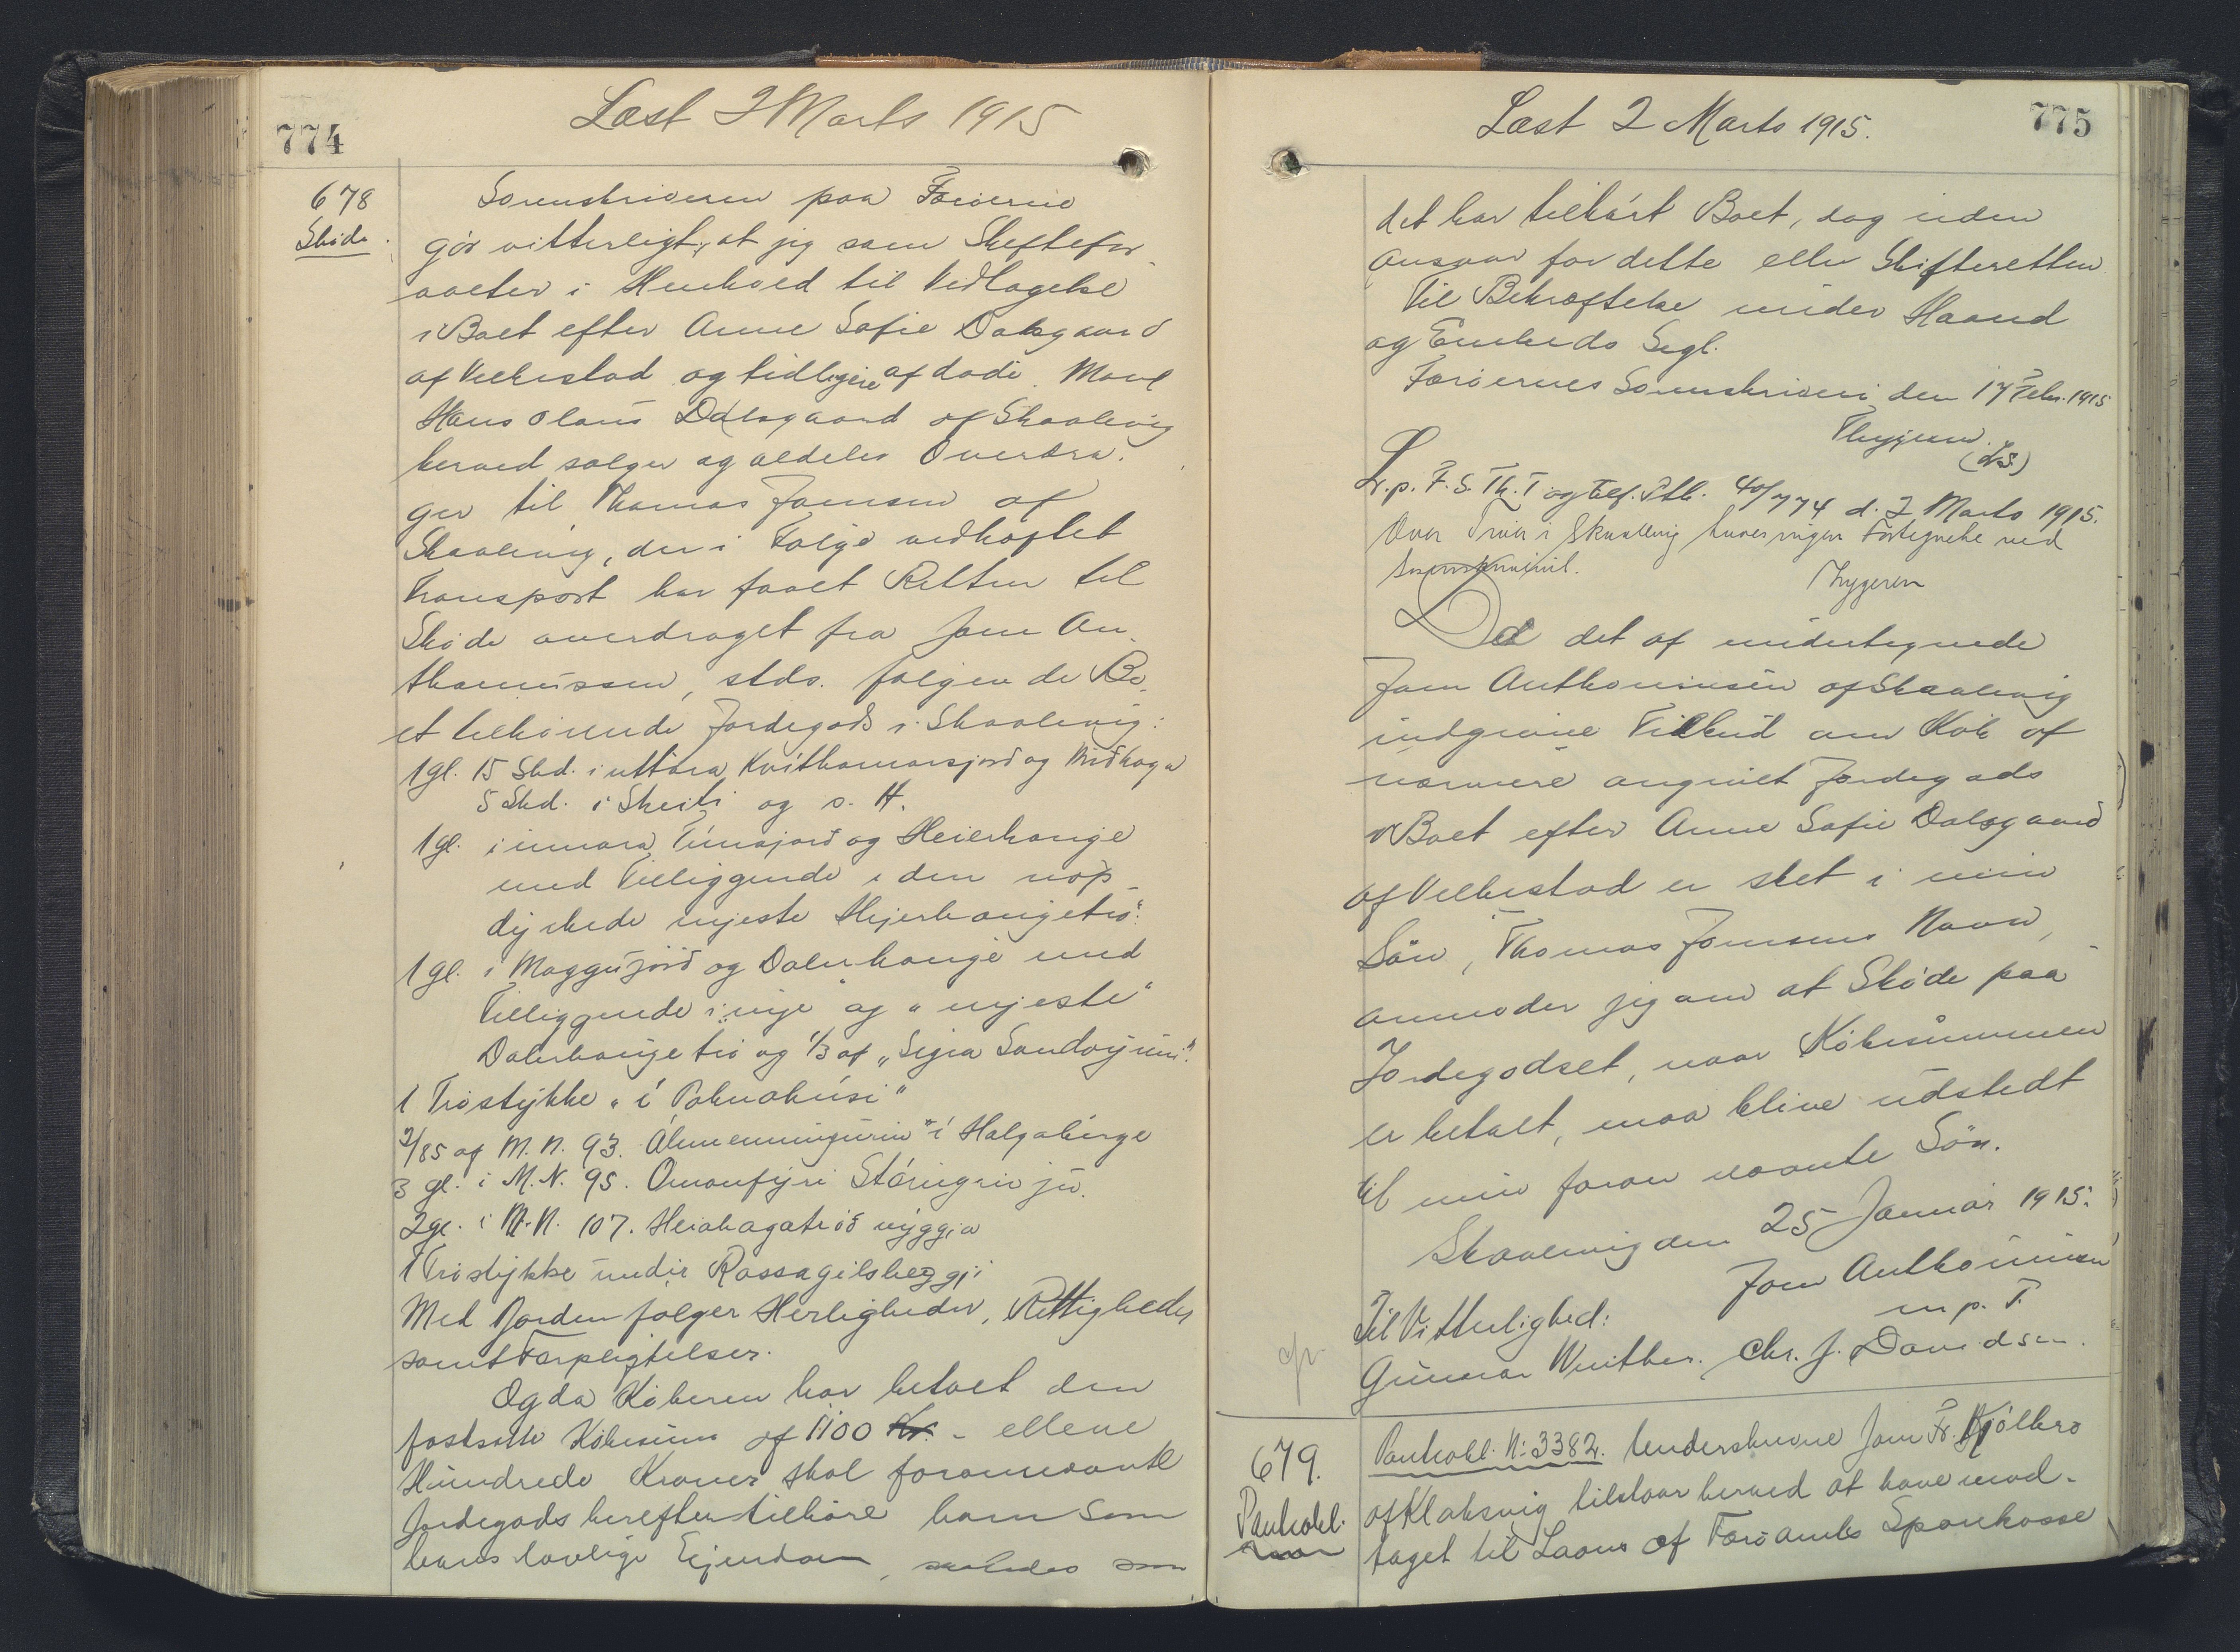 774
Læst 2 Marts 1915
678
Skøde.
Sorenskriveren paa Færøerne
gör vitterligt, at jeg som Skiftefor-
valter i Henhold til Vedtagelse
i Boet efter Anne Sofie Dalsgaard
af Velbestad og tidligere afdøde Mand
Hans Olaus Dalsgaard af Skaalevig
herved sælger og aldeles Overdra-
ger til Thomas Joensen af
Skaalevig, der i Følge vedhæftet
Transport har faaet Retten til
Skøde overdraget fra Joen An-
thoniussen, stds. følgende Bo-
et tilhørende Jordegods i Skaalevig:
1 gl. 15 Skd. i uttara Kvithamarsjørð og Midhaga
5 Skd. i Skeiti og s. H.
1 gl. i innara Túnsjørð og Heierhauge
med Tilliggende i den uop-
dyrkede nyjeste Hejerhaugetrø.
1 gl. i Maggujørð og Dalerhauge med
Tilliggende i "nye" og "nyjeste"
Dalerhaugetrø og 1/3 af "Signa Sandoyjuni".
1 Trøstykke "í Poknahúsi"
2/85 af M. N. 93. Álmenningurin í Halgabirge
3 gl. i M. N. 95. Omanfyri Stórugrivju.
2 gl. i M. N. 107. Heiahagatrøð nýggja
1 Trøstykke undir Rossagilsheggji
Med Jorden følger Herligheder, Rettigheder
samt Forpligtelser.
Og da Køberen har betalt den
fastsatte Købesum af 1100 Kr. - elleve
Hundrede Kroner skal forannævnte
Jordegods herefter tilhøre ham som
hans lovlige Ejendom, saaledes som
775
Læst 2 Marts 1915.
det har tilhørt Boet, dog uden
Ansvar for dette eller Skifteretten
Til Bekræftelse under Haand
og Embeds Segl.
Færøernes Sorenskriveri den 17 Febr. 1915
Thygesen.
(L.S.)
L. p. F. S. Th. T og Telf. Ptk. 40/774 d. 2 Marts 1915.
Over Trøer i Skaalevig haves ingen Fortegnelse ved
Sorenskriveriet.
Thygesen
Da det af undertegnede
Joen Anthoniusen af Skaalevig
indgivne Tilbud om Køb af
nærmere angivet Jordegods
i Boet efter Anne Sofie Dalsgaard
af Velbestad er sket i min
Sön, Thomas Joensens Navn,
anmoder jeg om at Skøde paa
Jordegodset, naar Købesummen
er betalt, maa blive udstedt
til min foran nævnte Sön.
Skaalevig den 25 Januar 1915.
Joen Anthoniusen
m. p. F.
Til Vitterlighed:
Gunnar Winther. Chr. J. Davidsen.
679.
Pantobl.
Pantobl. N: 3382. Underskrevne Joen Fr. Kjølbro
af Klaksvig tilstaar herved at have mod-
taget til Laans af Færø Amts Sparekasse